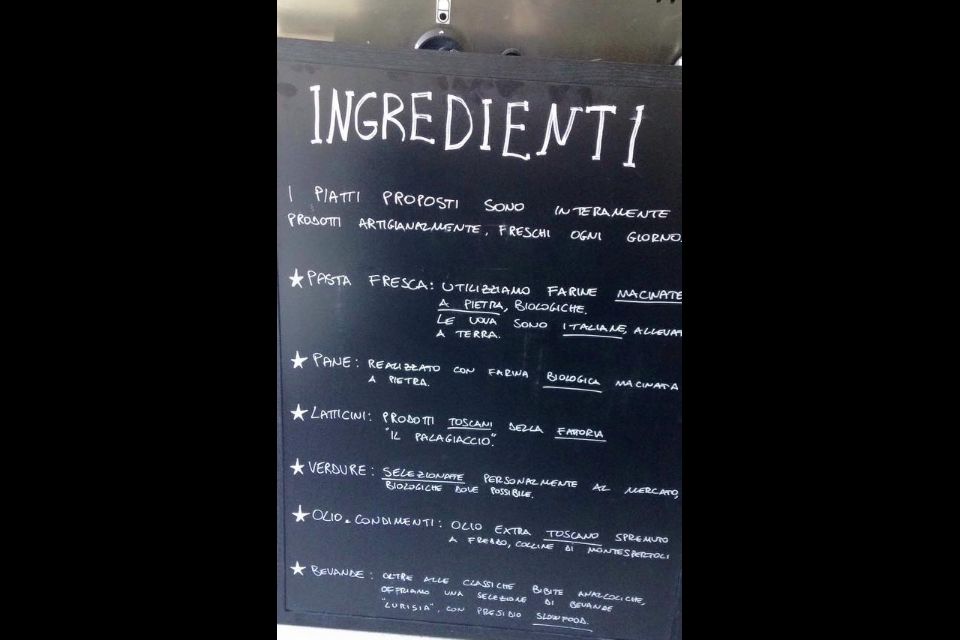 INGREDIENTI
I PIATTI PROPOSTI SONO INTERAMENTE
PRODOTTI ARTIGIANALMENTE, FRESCHI OGNI GIORNO.
★ PASTA FRESCA: UTILIZZIAMO FARINE MACINATE
A PIETRA, BIOLOGICHE.
LE UOVA SONO ITALIANE, ALLEVAT
A TERRA.
★ PANE: REALIZZATO CON FARINA BIOLOGICA MACINATA
A PIETRA.
★ LATTICINI: PRODOTTI TOSCANI DELLA FATTORIA
"IL PALAGIACCIO".
★ VERDURE: SELEZIONATE PERSONALMENTE AL MERCATO,
BIOLOGICHE DOVE POSSIBILE.
★ OLIO e CONDIMENTI: OLIO EXTRA TOSCANO SPREMUTO
A FREDDO, COLLINE DI MONTESPERTOLI
★ BEVANDE: OLTRE ALLE CLASSICHE BIBITE ANALCOLICHE,
OFFRIAMO UNA SELEZIONE DI BEVANDE
"LURISIA", CON PRESIDIO SLOWFOOD.